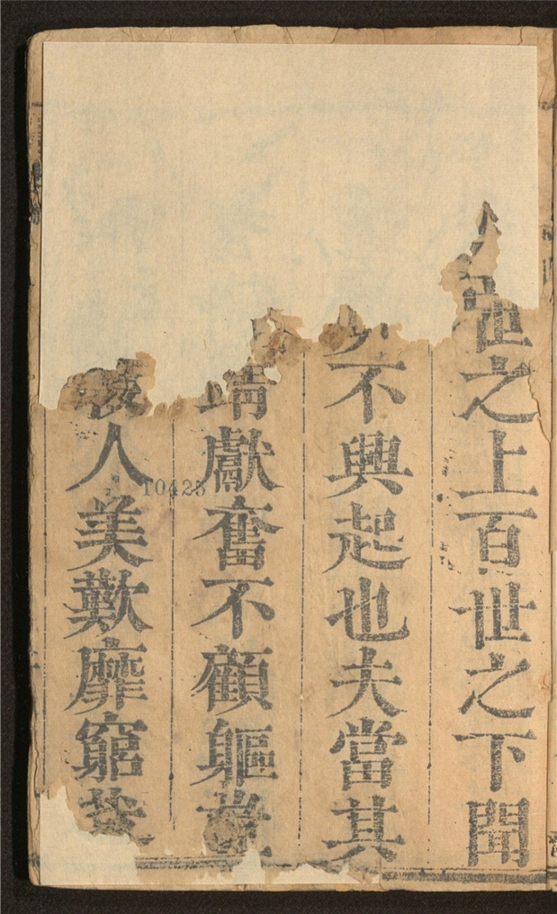 世之上百世之下聞
不興起也夫當其
靖獻奮不顧軀
人美歎靡窮
10425